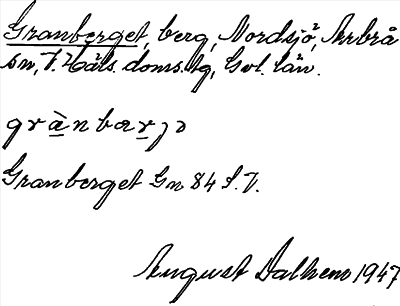 Granberget, berg, Nordsjö, Arbrå
sn, V. Häls. doms. tg, Gvl. län.
grànbarjə
Granberget Gn 84 S.V.
August Dalhem 1947